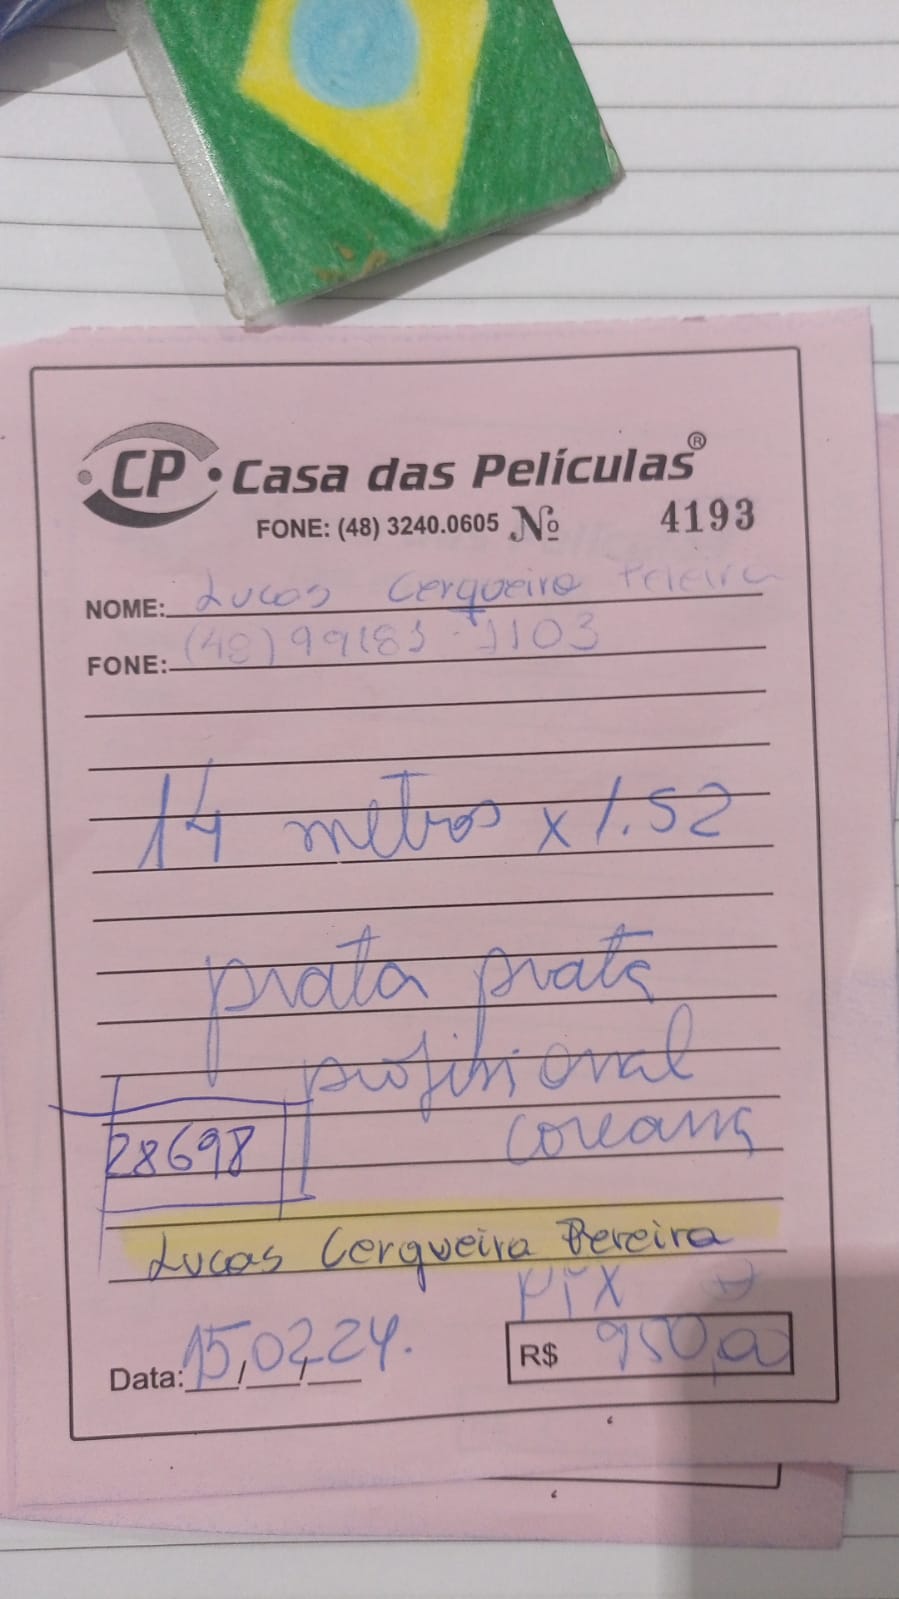 CP Casa das Películas®
FONE: (48) 3240.0605 Nº 4193
NOME: Lucas Cerqueira Pereira
FONE: (48) 99183-1103
14 metros x 1.52
prata prata
profisional
coreana
28698
Lucas Cerqueira Pereira
PIX
Data: 15/02/24. R$ 950,00